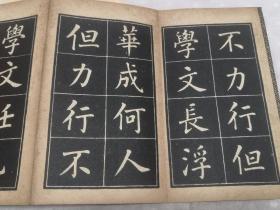 不力行但
學文長浮
華成何人
但力行不
學文任